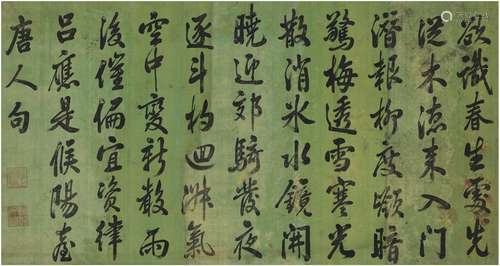 欲識春生處先
從木德來入門
潛報柳度嶺暗
驚梅透雪寒光
散消氷水鏡開
曉迎郊騎發夜
逐斗杓迴卉氣
空中變新雨
後催偏宜資律
吕應是候陽臺
唐人句